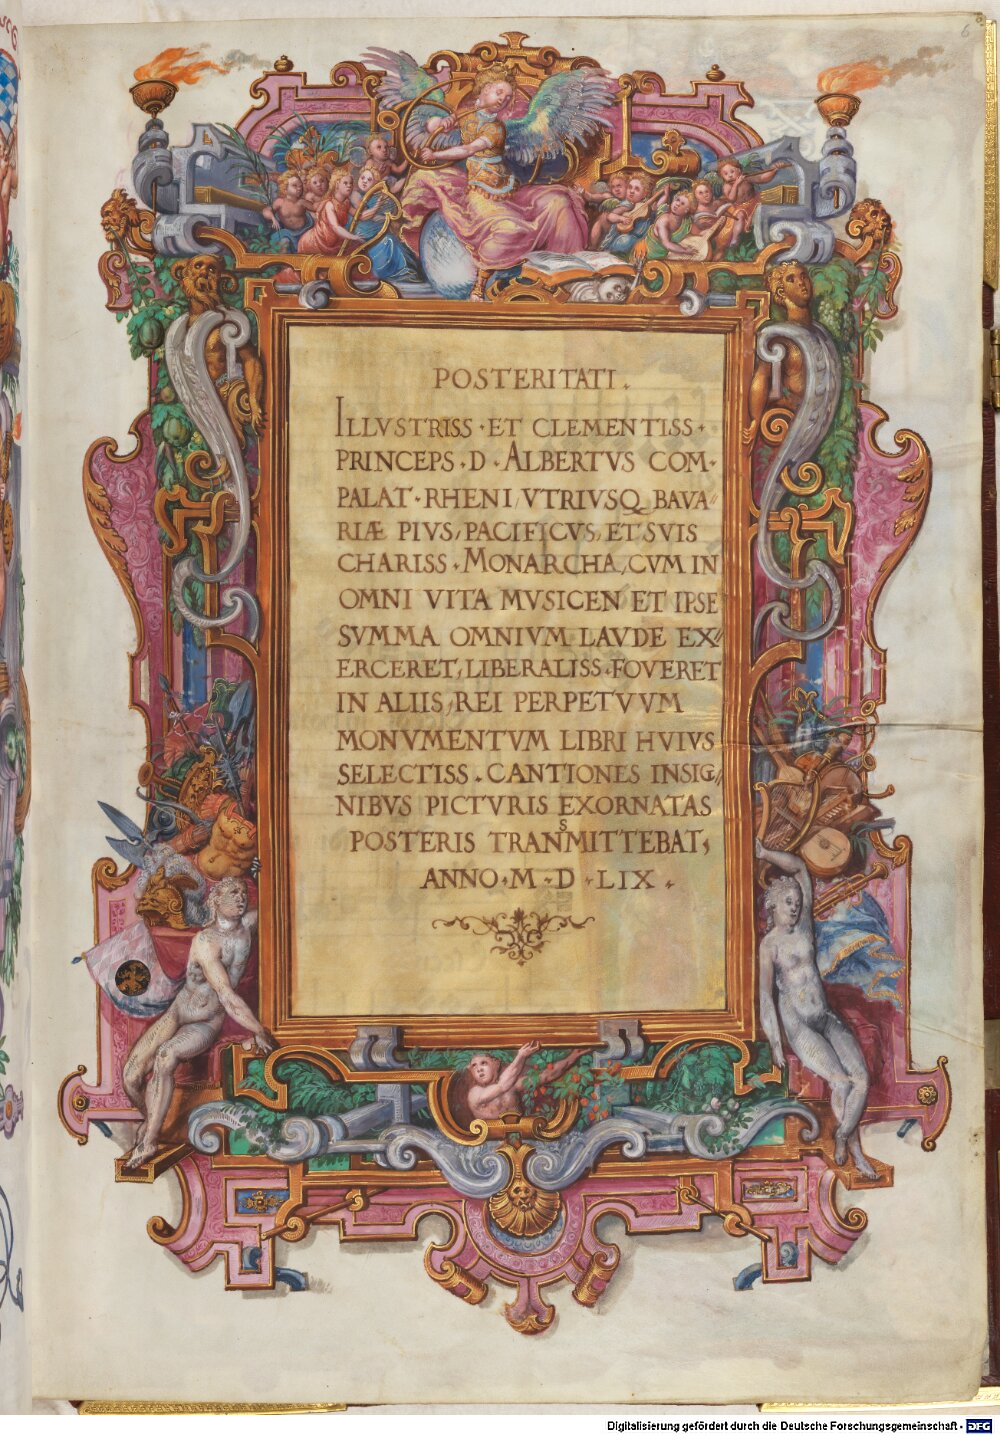 6
POSTERITATI.
ILLVSTRISS·ET CLEMENTISS·
PRINCEPS·D·ALBERTVS COM·
PALAT·RHENI/VTRIVSQ BAVA//
RIÆ PIVS, PACIFICVS, ET SVIS
CHARISS·MONARCHA, CVM IN
OMNI VITA MVSICEN ET IPSE
SVMMA OMNIVM LAVDE EX//
ERCERET, LIBERALISS·FOVERET
IN ALIIS, REI PERPETVVM
MONVMENTVM LIBRI HVIVS
SELECTISS·CANTIONES INSIG//
NIBVS PICTVRIS EXORNATAS
POSTERIS TRANSMITTEBAT,
ANNO·M·D·LIX·
Digitalisierung gefördert durch die Deutsche Forschungsgemeinschaft - DFG